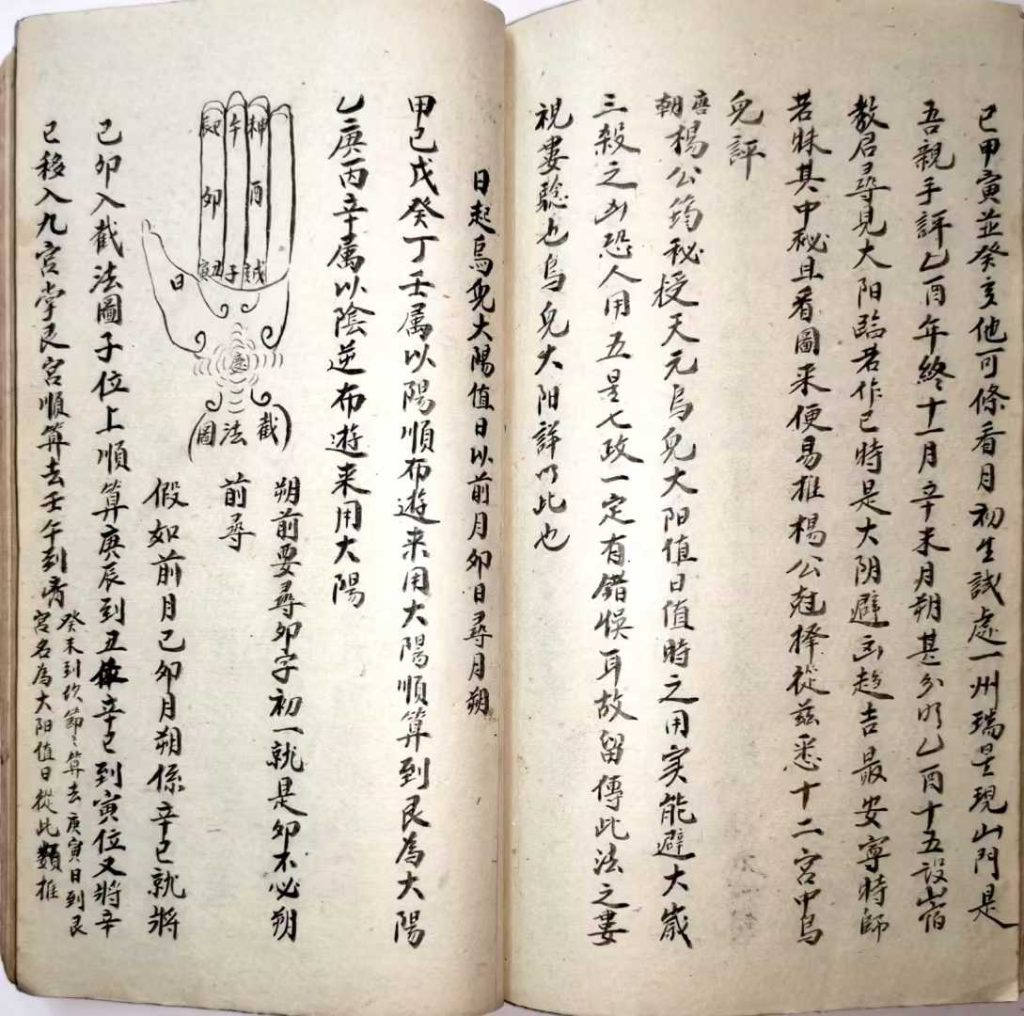 已甲寅並癸亥他可條看月初生試處一州瑞是現山門是
吾親手評乙酉年終十一月辛未月朔甚分明乙酉十五設
教君尋見大阳臨若作已時是大阴避凶趋吉最安寧時師
若昧其中秘且看圖來便易推楊公尅擇從茲悉十二宮中烏
兔評
唐朝楊公筠秘授天元烏兔大阳值日值時之用实能避大歲
三殺之凶恐人用五星七政一定有錯悞耳故留傳此法之婁
視婁聽也烏兔大阳詳明此也
日起烏兔大陽值日以前月卯日尋月朔
甲己戊癸丁壬屬以陽順布遊来用大陽順算到艮為大陽
乙庚丙辛屬以陰逆布遊来用大陽
辰巳 午 神
卯 酉
寅 丑 子 戌
日
截法圖
朔前要尋卯字初一就是卯不必朔
前尋
假如前月己卯月朔係辛巳就將
己卯入截法圖子位上順算庚辰到丑位辛巳到寅位又將辛
已移入九宮掌艮宮順算去壬午到离癸未到坎節々算去庚寅日到艮
宮名為大阳值日從此類推